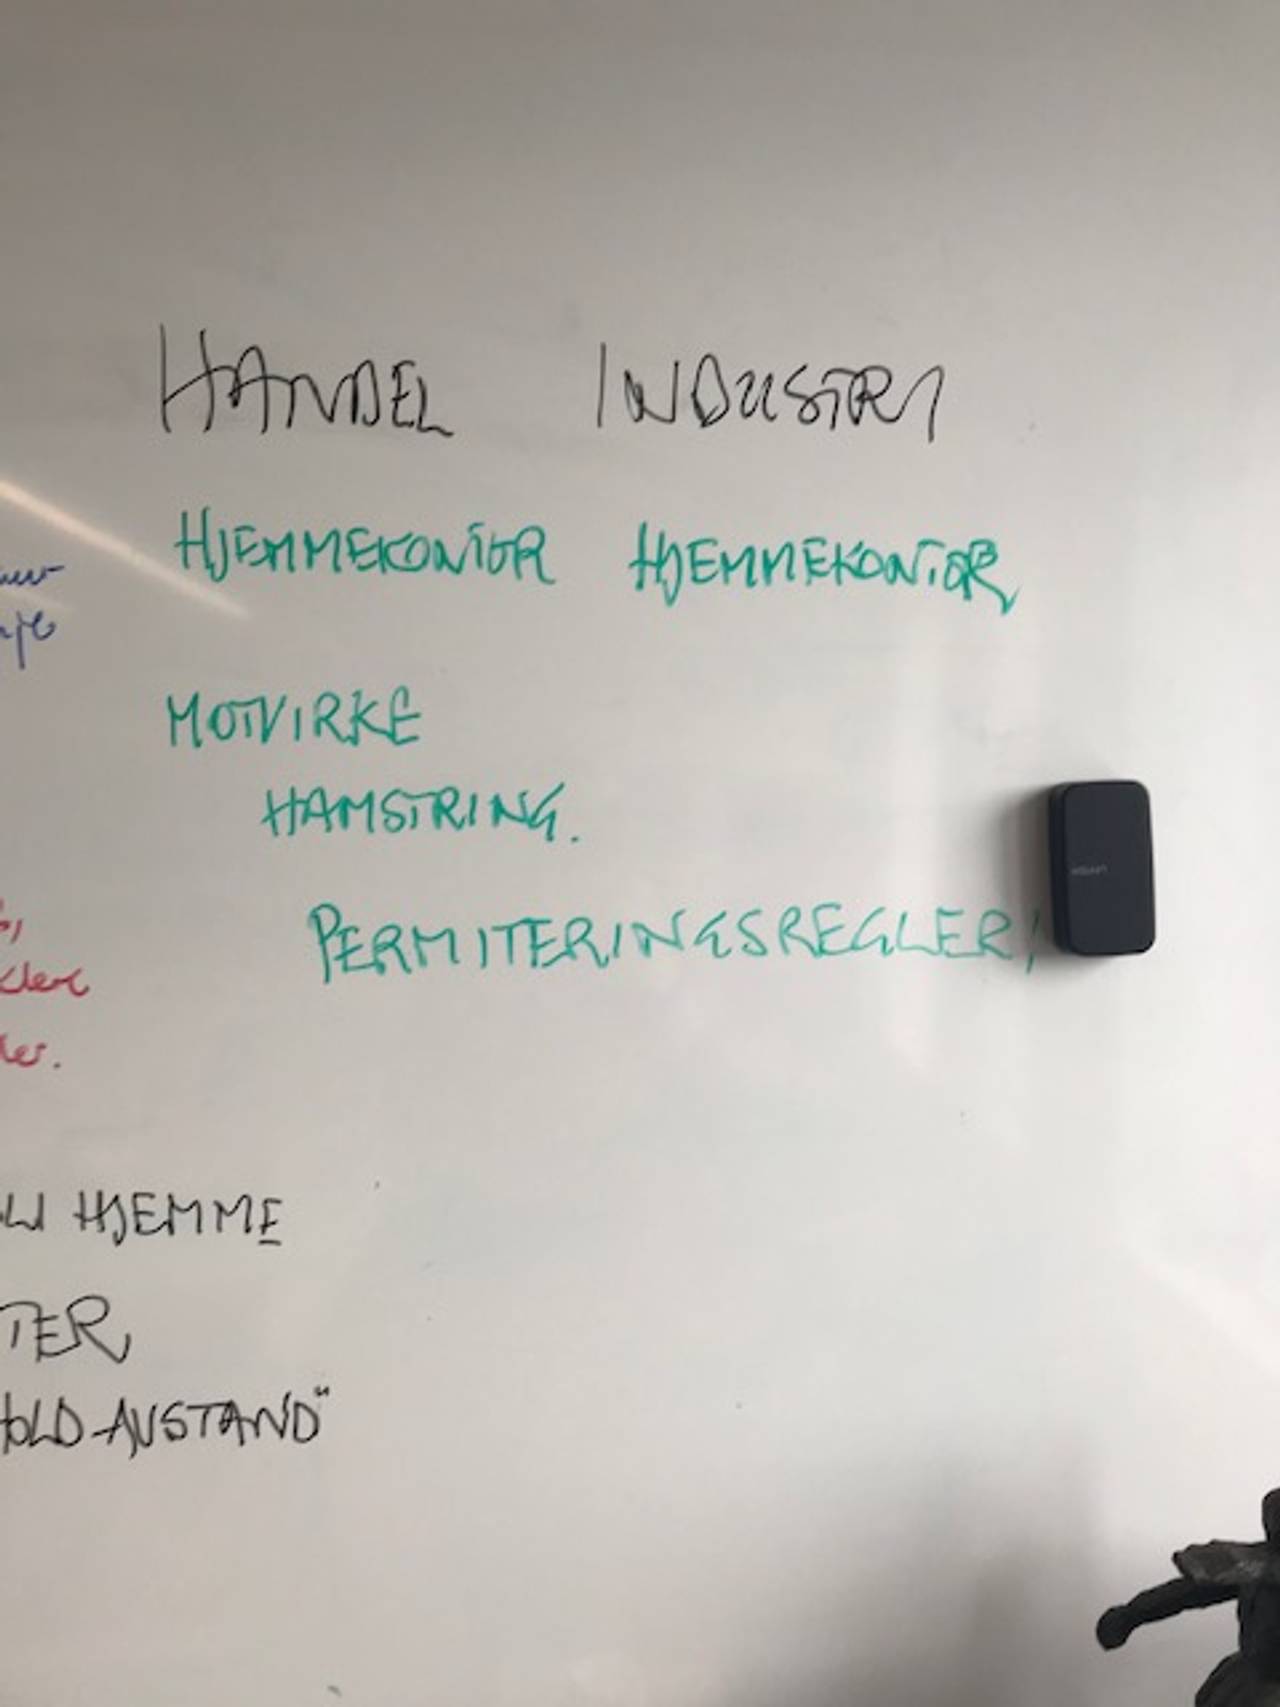 HANDEL INDUSTRI
HJEMMEKONTOR HJEMMEKONTOR
MOTVIRKE
HAMSTRING.
PERMITERINGSREGLER
HJEMME
TER
HOLD AVSTAND"